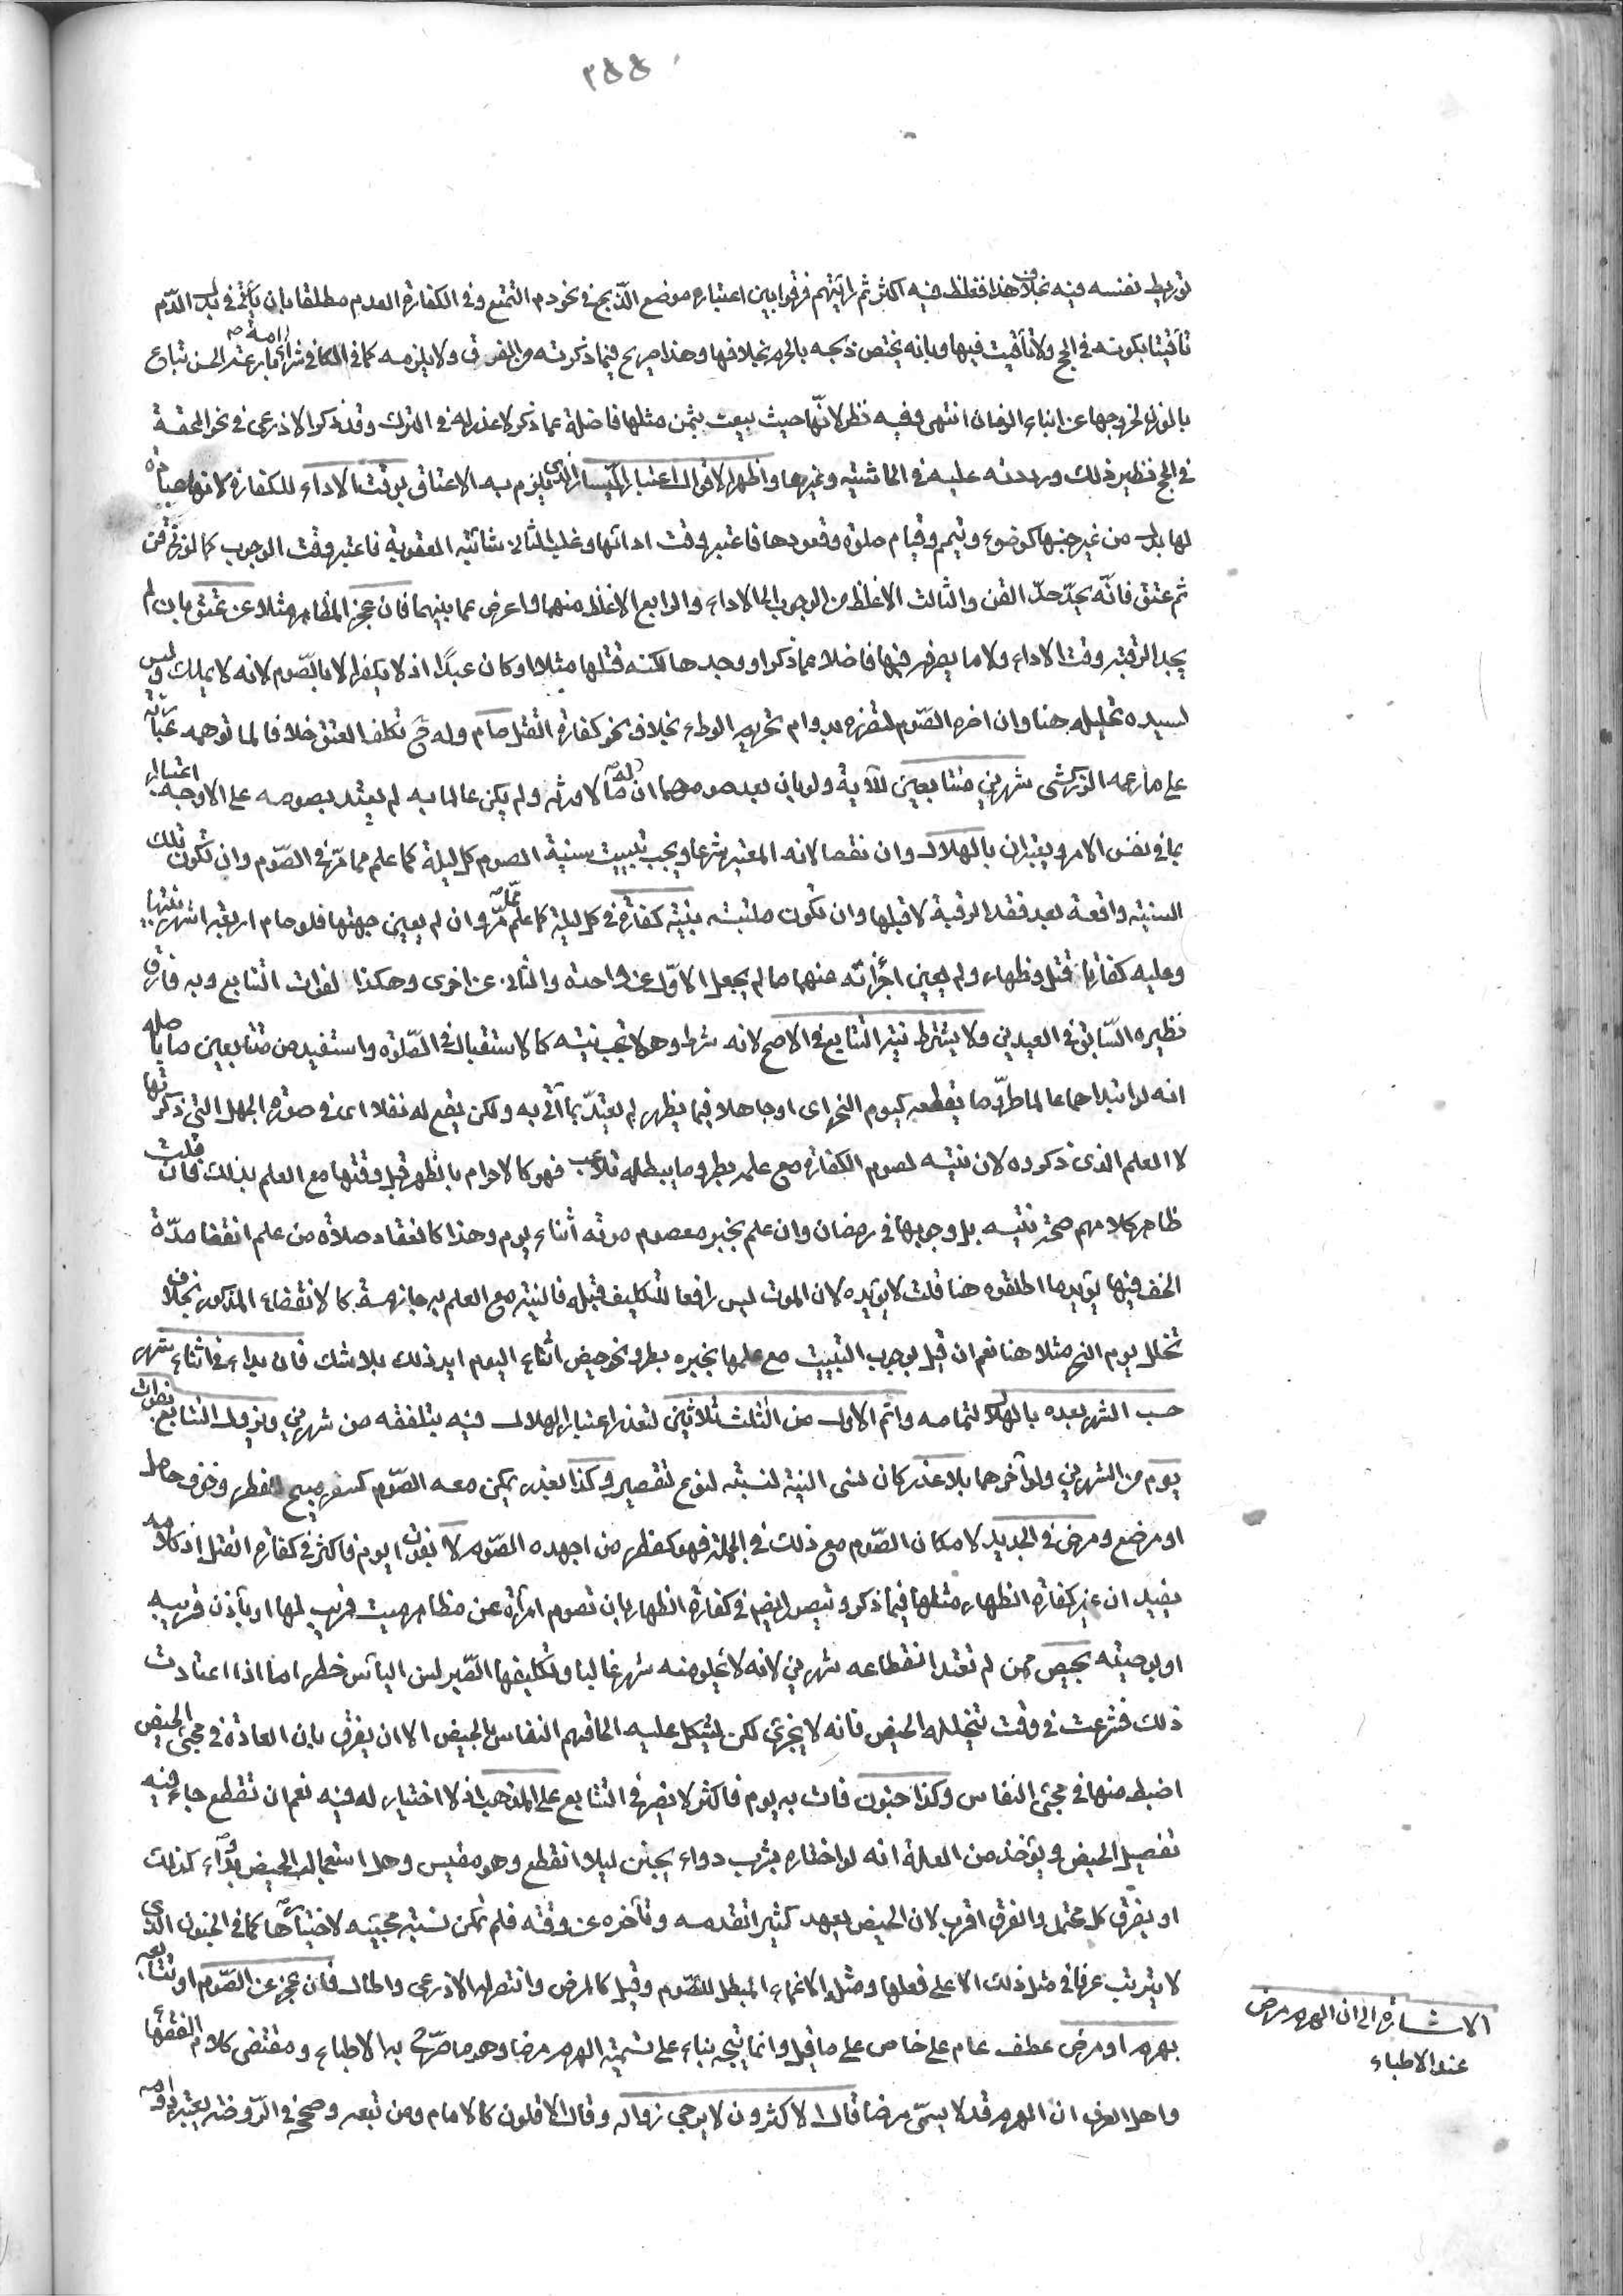 ٣٥٥
توريط نفسه فيه بخلاف هذا فغلظ فيه اكثر ثم رايتهم فرقوا بين اعتباره موضع الذبح في نحو دم التمتع وفي الكفارة العدم مطلقا بان في بدل الدم
تأقيتا بكونه في الحج ولا تأقيت فيها وبانه يختص ذبحه بالحرم بخلافها وهذا صريح فيما ذكرته من الفرق ولا يلزمه كما في الكافي شراء امة بارعة الحسن تباع
بالوزن لخروجها عن ابناء الزمان انتهى وفيه نظر لانها حيث بيعت بثمن مثلها فاضلة عما ذكر لا عذر له في الترك وقد ذكر الاذرعي في نحو المحفة
في الحج نظير ذلك ورددته عليه في الحاشية وغيرها واظهر الاقوال اعتبار اليسار الذي يلزم به الاعتاق بوقت الاداء للكفارة لانها عبادة
لها بدل من غير جنسها كوضوء وتيمم وقيام صلوة وقعودها فاعتبر وقت ادائها وغلب الثاني شائبة العقوبة فاعتبر وقت الوجوب كما لو زنى قن
ثم عتق فانه يحد حد القن والثالث الاغلظ من الوجوب الى الاداء والرابع الاغلظ منهما واعرض عما بينهما فان عجز المظاهر مثلا عن عتق بان لم
يجد الرقبة وقت الاداء ولا ما يصرفه فيها فاضلا عما ذكر او وجدها لكنه قتلها مثلا او كان عبدا اذ لا يكفر الا بالصوم لانه لا يملك وليس
لسيده تحليله هنا وان اضره الصوم لتضرره بدوام تحريم الوطء بخلاف نحو كفارة القتل صام وله تكلف العتق خلافا لما توهمه عبارته
على ما زعمه الزركشي شهرين متتابعين للآية ولو بان بعد صومهما ان له مالا ورثه ولم يكن عالما به لم يعتد بصومه على الاوجه اعتبارا
بما في نفس الامر ويعتبران بالهلال وان نقصا لانه المعتبر شرعا ويجب تبييت نية الصوم كل ليلة كما علم مما مر في الصوم وان تكون تلك
النية واقعة بعد فقد الرقبة لا قبلها وان تكون ملتبسة بنية كفارة في كل ليلة كما علم مما مر وان لم يعين جهتها فلو صام اربعة اشهر بنيتها
وعليه كفارتا قتل وظهار ولم يعين اجزأته عنهما ما لم يجعل الاول عن واحدة والثاني عن اخرى وهكذا لفوات التتابع وبه فارق
نظيره السابق في العبدين ولا يشترط نية التتابع في الاصح لانه شرط وهو لا تجب نيته كالاستقبال في الصلوة واستفيد من متتابعين ما باصله
انه لو ابتداهما عالما طرو ما يقطعه كيوم النحر اي او جاهلا فيما يظهر لم يعتد بما اتى به ولكن يقع له نفلا اي في صورة الجهل التي ذكرتها
لا العلم الذي ذكروه لان نيته لصوم الكفارة مع علمه بطرو ما يبطله تلاعب فهو كالاحرام بالظهر قبل وقتها مع العلم بذلك فان قلت
ظاهر كلامهم صحة نيته بل وجوبها في رمضان وان علم بخبر معصوم موته اثناء يوم وهذا كانعقاد صلاة من علم انقضا مدة
الخف فيها يؤيد ما اطلقوه هنا قلت لا يؤيده لان الموت ليس رافعا للتكليف قبله فالنية مع العلم به جازمة كالانقضاء المذكور بخلاف
تخلل يوم النحر مثلا هنا نعم ان قيل بوجوب التبييت مع علمها بخبره بطرو نحو حيض اثناء اليوم ايد ذلك بلا شك فان بدا في اثناء شهر
حسب الشهر بعده بالهلال لتمامه واتم الاول من الثالث ثلاثين لتعذر اعتبار الهلال فيه بتلفقه من شهرين ويزول التتابع بفوات
يوم من الشهرين ولو آخرهما بلا عذر كان نسي النية لنسبته لنوع تقصير وكذا بعذر يمكن معه الصوم كسفر مبيح للفطر وخوف حامل
او مرضع ومرض في الجديد لامكان الصوم مع ذلك في الجملة فهو كفطر من اجهده الصوم لا بفوات يوم فاكثر في كفارة القتل اذ كلامه
يفيد ان غير كفارة الظهار مثلها فيما ذكر ويتصور ايضا في كفارة الظهار بان تصوم امرأة عن مظاهر ميت قريب لها او باذن قريبه
او بوصيته بحيض ممن لم تعتد انقطاعه شهرين لانه لا يخلو منه شهر غالبا وتكليفها الصبر لسن اليأس خطر اما اذا اعتادت
ذلك فشرعت في وقت يتخلله الحيض فانه لا يجزي لكن يشكل عليه الحاقهم النفاس بالحيض الا ان يفرق بان العادة في مجيء الحيض
اضبط منها في مجيء النفاس وكذا جنون فات به يوم فاكثر لا يضر في التتابع على المذهب اذ لا اختيار له فيه نعم ان تقطع جاء فيه
تفصيل الحيض ويؤخذ من العلة انه لو اختاره بشرب دواء يجنن ليلا انقطع وهو مقيس وهل استعجال الحيض بدواء كذلك
او يفرق كل محتمل والفرق اقرب لان الحيض يعهد كثيرا تقدمه وتأخره عن وقته فلم يمكن نسبة مجيئه لاختيارها كما في الجنون الذي
لا يترتب عرفا في مثل ذلك الا على فعلها ومثله الاغماء المبطل للصوم وقيل كالمرض وانتصر له الاذرعي واطال فان عجز عن الصوم او تتابعه
بهرم او مرض عطف عام على خاص على ما قيل وانما يتجه بناء على تسمية الهرم مرضا وهو ما صرح به الاطباء ومقتضى كلام الفقها
واهل العرف ان الهرم قد لا يسمى مرضا قال الاكثرون لا يرجى زواله وقال الاقلون كالامام ومن تبعه وصححه في الروضة يعتبر دوامه
الاشارة الى ان الهرم مرض
عند الاطباء